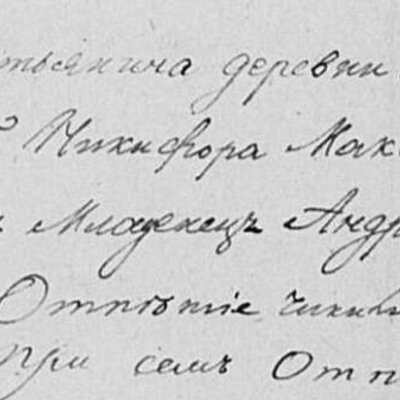 тьянина деревни
Никифора Мак
Младенецъ Андр
Отпѣтіе чини
При семъ Отп